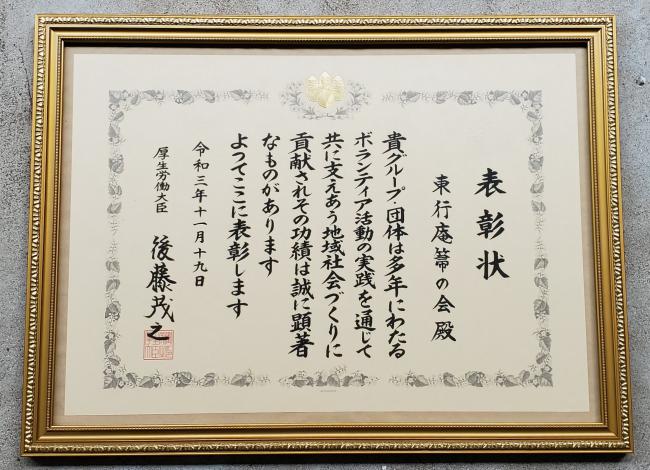 表彰状
東行庵箒の会殿
貴グループ・団体は多年にわたる
ボランティア活動の実践を通じて
共に支えあう地域社会づくりに
貢献されその功績は誠に顕著
なものがあります
よってここに表彰します
令和三年十一月十九日
厚生労働大臣 後藤茂之